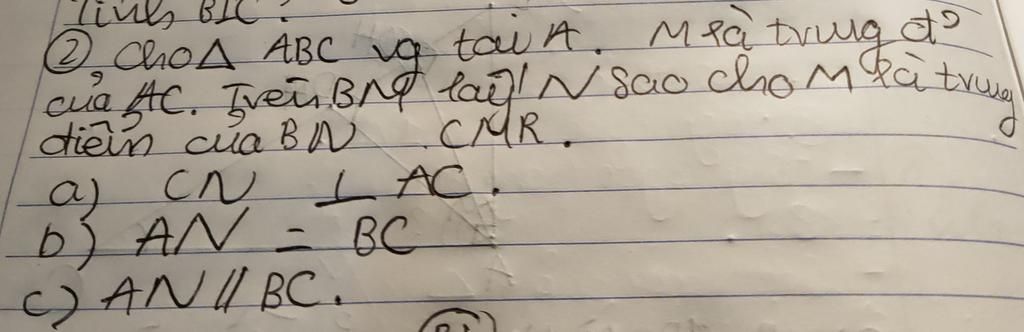 Tính BIC?
② Cho Δ ABC vg tại A. M là trung đ²
của AC. Trên BM lấy N sao cho M là trung
điểm của BN. CMR.
a) CN ⊥ AC.
b) AN = BC
c) AN // BC.